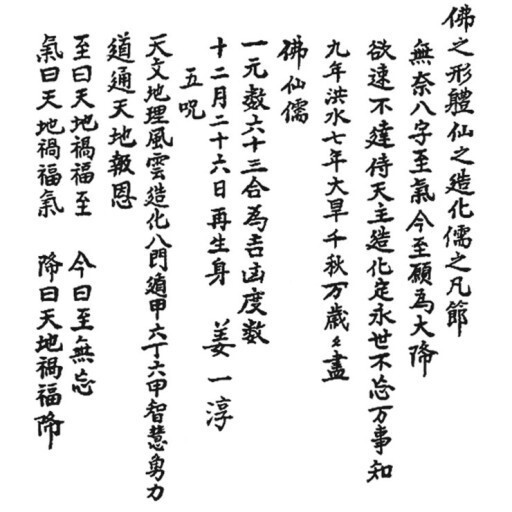 佛之形軆仙之造化儒之凡節
無奈八字至氣今至願為大降
欲速不達侍天主造化定永世不忘万事知
九年洪水七年大旱千秋万歲〻盡
佛仙儒
一元數六十三合為吉凶度数
十二月二十六日再生身 姜一淳
五呪
天文地理風雲造化八門遁甲六丁六甲智慧勇力
道通天地報恩
至曰天地禍福至 今曰至無忘
氣曰天地禍福氣 降曰天地禍福降